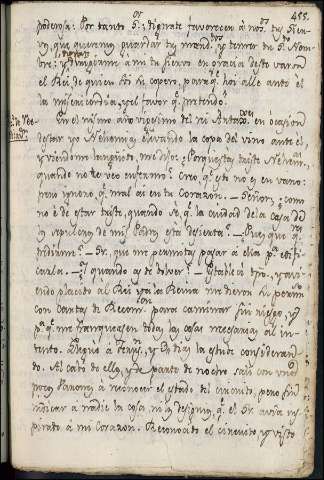 455.
poderosa. Por tanto Sor. dignate favorecer à nos. tus Sier-
vos, que queremos guardar tus mand.tos y temor de Sto. Nom-
bre; y dirigeme a mi tu siervo en gracia deste varon
el Rei, de quien soi su copero, para q.e hai alle ante él
la misericordia, y el favor q.e pretendo.
En el mismo año vigesimo del rei Artax.xes en ocasion
destar yo Nehemias elevando la copa del vino ante el,
y viendome languido, me dijo: Porque estas triste Nehemias,
quando no te veo enfermo? Creo, q.e esto no es en vano:
pero ignoro, q.e mal ai en tu Corazon. — Señor, ¿como
no è de estar triste, quando sè, q.e la ciudad de la casa d
los sepulcros de mis Padres esta desierta? — Pues que
pidieras? — Sr. que me permitas pasar à ella p.a edifi-
carla. — ¿y quando as de bolver? — Establecí tpo. y avi-
endo placido al Rei y a la Reina me dieron su permiso
con Cartas de Recom.on para caminar sin riesgo, y
p.a q.e me franqueasen todas las cosas necesarias al in-
tento. Llegué à Jerus.n y 3. dias la estuve considerando.
Al cabo de ello, y de parte de noche sali con unos
pocos Varones à reconocer el estado del circuito, pero sin
indicar a nadie la cosa, ni el designio, q.e el Sr. avia ins-
pirado à mi corazon. Reconocido el circuito y visto